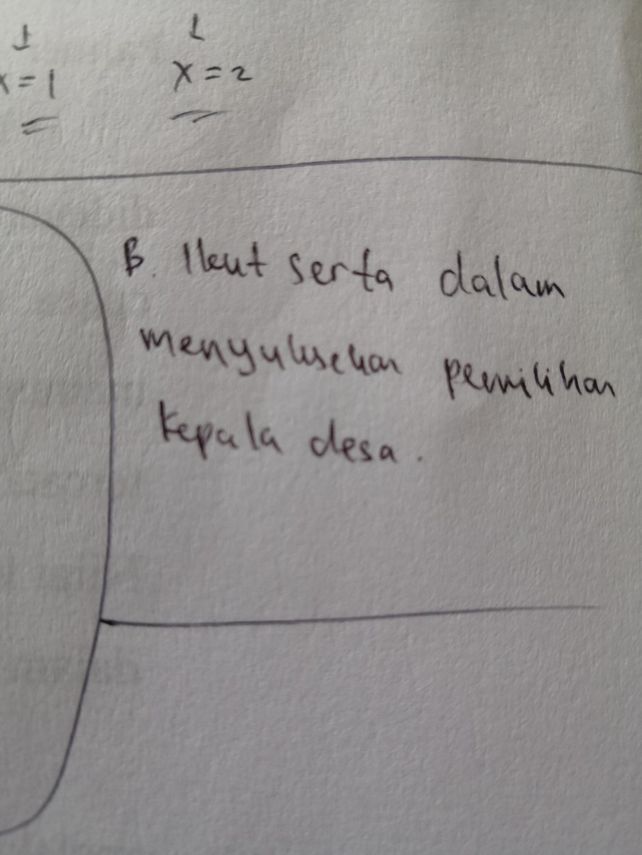 x=1 x=2
B. Ikut serta dalam
menyukseskan pemilihan
kepala desa.